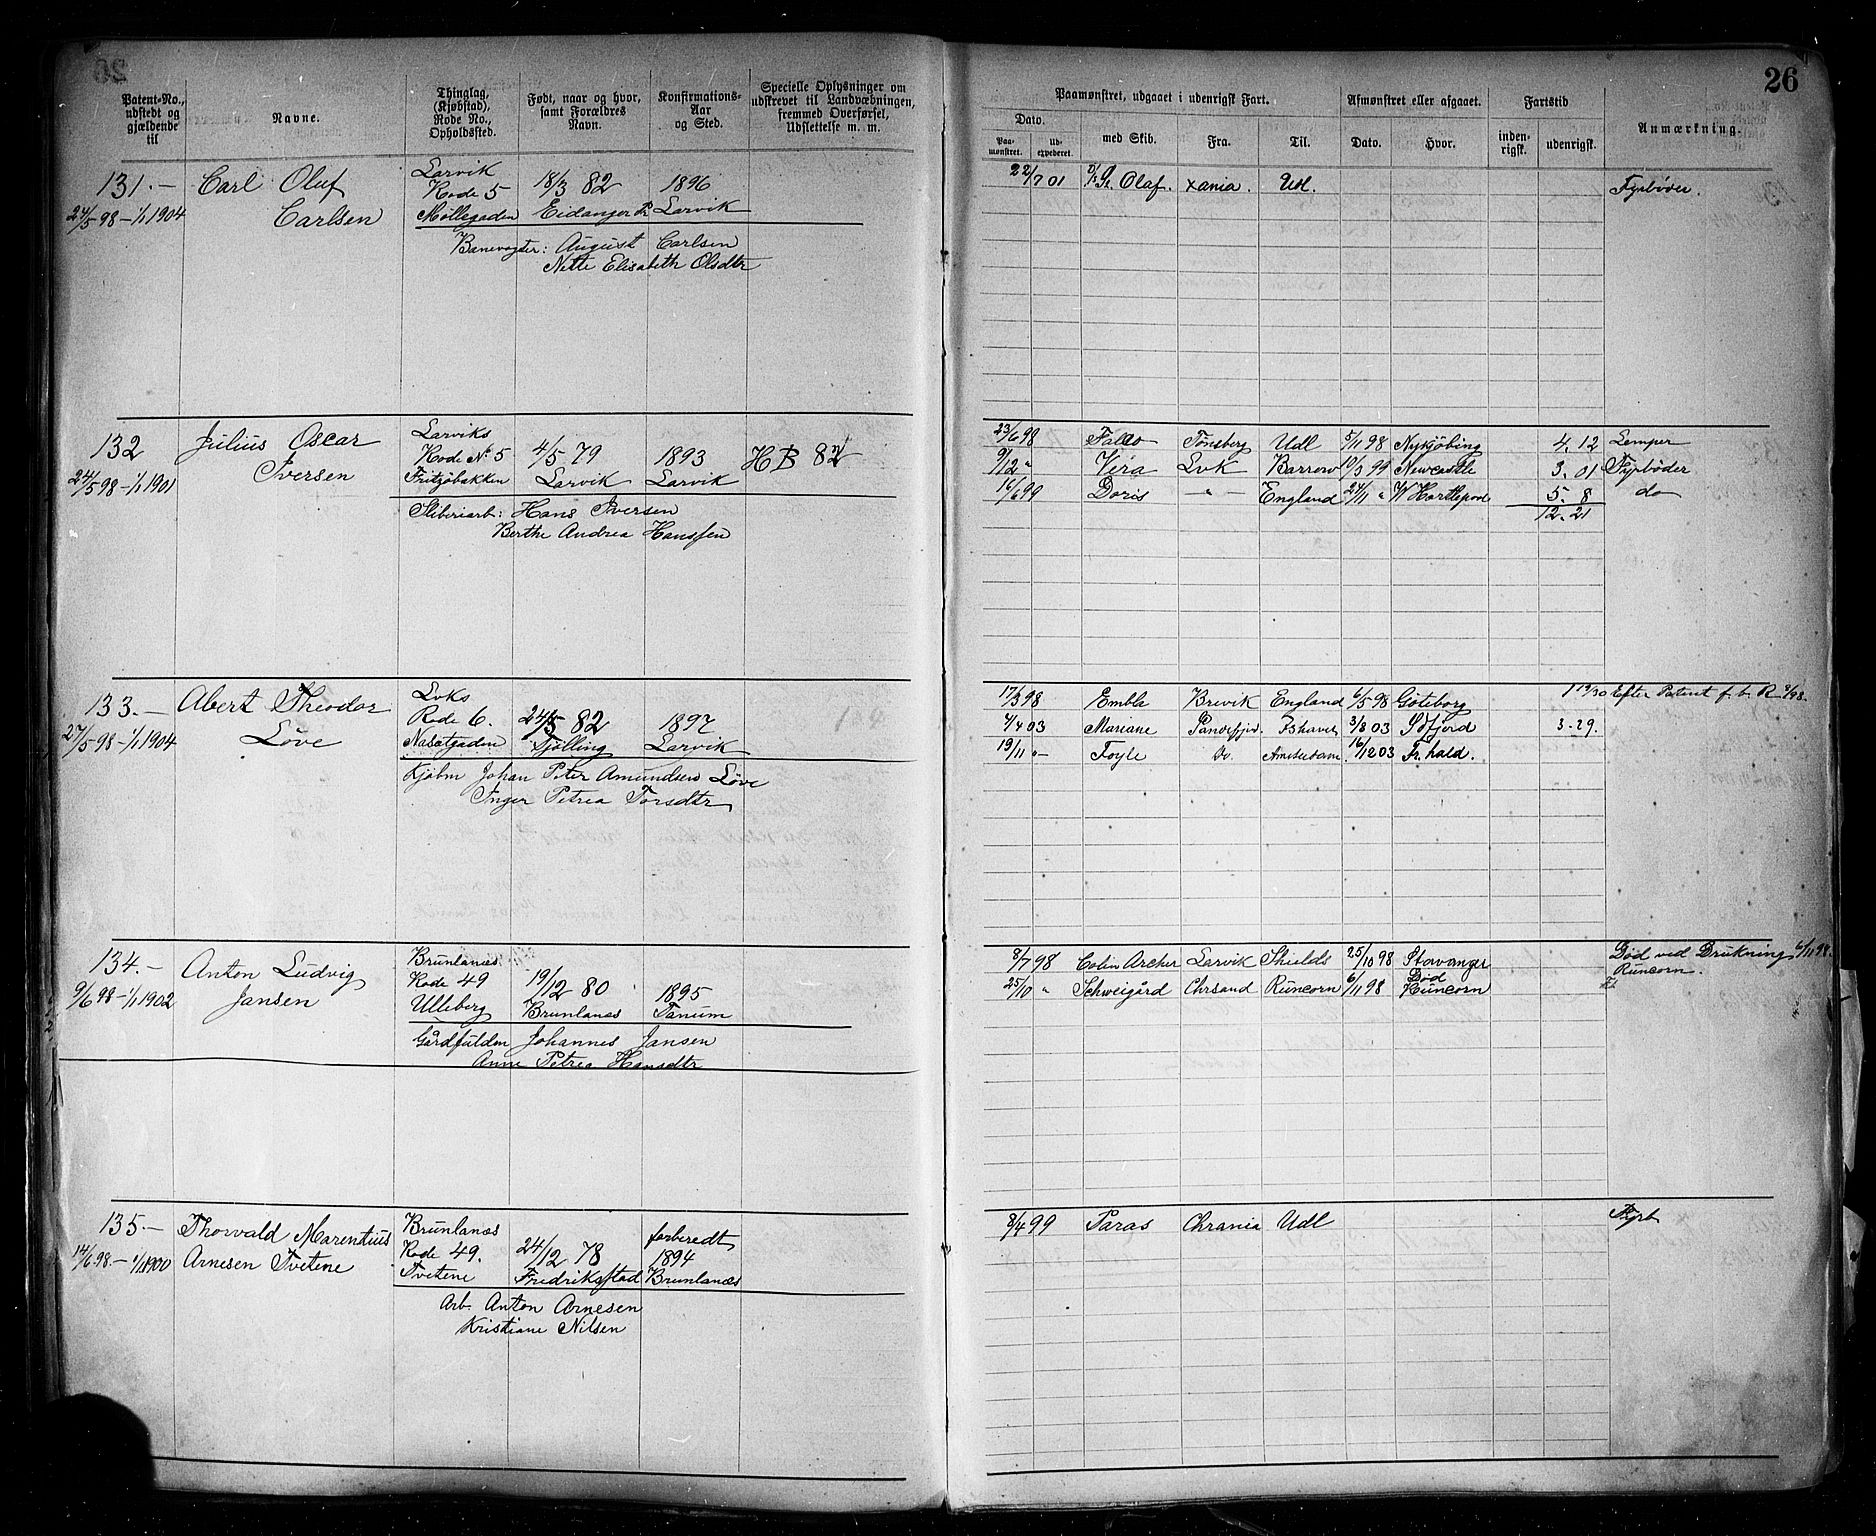 26
Patent-No., udstedt og gjældende til
Navne.
Thinglag, (Kjøbstad), Rode No., Opholdssted.
Født, naar og hvor, samt Forældres Navn.
Konfirmations-Aar og Sted.
Specielle Oplysninger om udskrevet til Landværbningen, fremmed Overførsel, Udslettelse m. m.
Paamønstret, udgaaet i udenrigsk Fart.
Afmønstret eller afgaaet.
Fartstid
Anmærkning.
Dato.
Paamønstret.
Udexpederet.
med Skib.
Fra.
Til.
Dato.
Hvor.
indenrigsk.
udenrigsk.
131.- Carl Oluf Larvik 18/3 82 1896
24/5 98 - 1/1 1904 Carlsen Rode 5 Eidanger Larvik
Møllegaden
Banevogter: August Carlsen
Nette Elisabeth Olsdtr
22/7 01 Olaf. Xania. Udl. Fyrbøder.
132 Julius Oscar Larviks 4/5 79 1893 HB 82
24/5 98 - 1/1 1901 Iversen Rode No 5 Larvik Larvik
Fritzøbakken
Sliberiarb: Hans Iversen
Berthe Andrea Hanssen
23/6 98 Falco Tønsberg Udl 5/11 98 Nykjöbing 4. 12 Lemper
9/12 " Vera Lvk Barrow 10/3 99 Newcastle 3. 01 Fyrbøder
16/6 99 Doris - " - England 24/11 " W Hartlepool 5. 8 do
12. 21
133.- Abert Theodor Lvks 24/5 82 1897
27/5 98 - 1/1 1904 Löve Rode 6. Tjølling Larvik
Nasætgaden
Kjøbm Johan Peter Amundsen Löve
Inger Petrea Torsdtr
17/3 98 Embla Brevik England 6/5 98 Göteborg 1 19/30 Efter Patent f. b. R 9/98.
4/4 03 Mariane Sandefjord 3/8 03 3-29.
19/11 - Foyle Do Amsterdam. 16/12 03 Fr. hald.
134.- Anton Ludvig Brunlanes 19/12 80 1895
9/6 98 - 1/1 1902 Jansen Rode 49 Brunlanes Tanum
Ulleberg
Gårdfulden Johannes Jansen
Anne Petrea Hansdtr
8/7 98 Colin Archer Larvik Shields 25/10 98 Stavanger Død ved Drukning 6/11 98.
25/10 " Schweigård Chrsand Runcorn 6/11 98 Død Runcorn Runcorn.
135.- Thorvald Marentius Brunlanes 24/12 78 forberedt
14/6 98. - 1/1 1900 Arnesen Tvetene Rode 49. Fredriksstad 1894
Tvetene Brunlanes
Arb. Anton Arnesen
Kristiane Nilsen
8/4 99 Paras Chrania Udl Fyrb